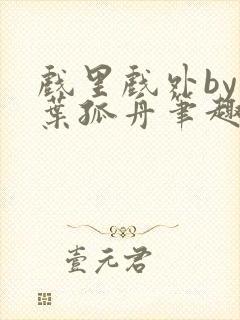 戲里戲外by一
葉孤舟筆趣
壹元君